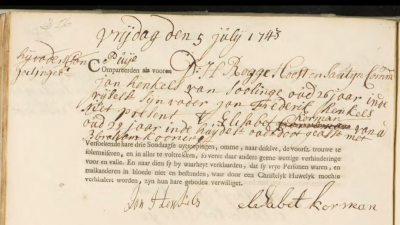 vrijdag den 5 july 1743
Puije
Compareerden als vooren Dr: H Rogge Hooft en Comm
Jan henkels van Soolinge oud 26 jaar inde
vader Jan Frederik Henkels
niet present & Elisabet Korman van A
oud 21 jaar inde geass: met
Abraham Coerman
Versoekende hare drie Sondaagse uytroepingen, omme, naar deselve, de voorsz. trouwe te
solemniseren, en in alles te voltrekken, so verre daar anders geene wettige verhinderinge
voor en valle. En naar dien sy by waarheyt verklaarden, dat sy vrye Personen waren, en
malkanderen in bloede niet en bestonden, waar door een Christelyk Huwelyk mochte
verhindert worden, zyn hun hare geboden verwilliget.
Jan Henkels elisabet korman